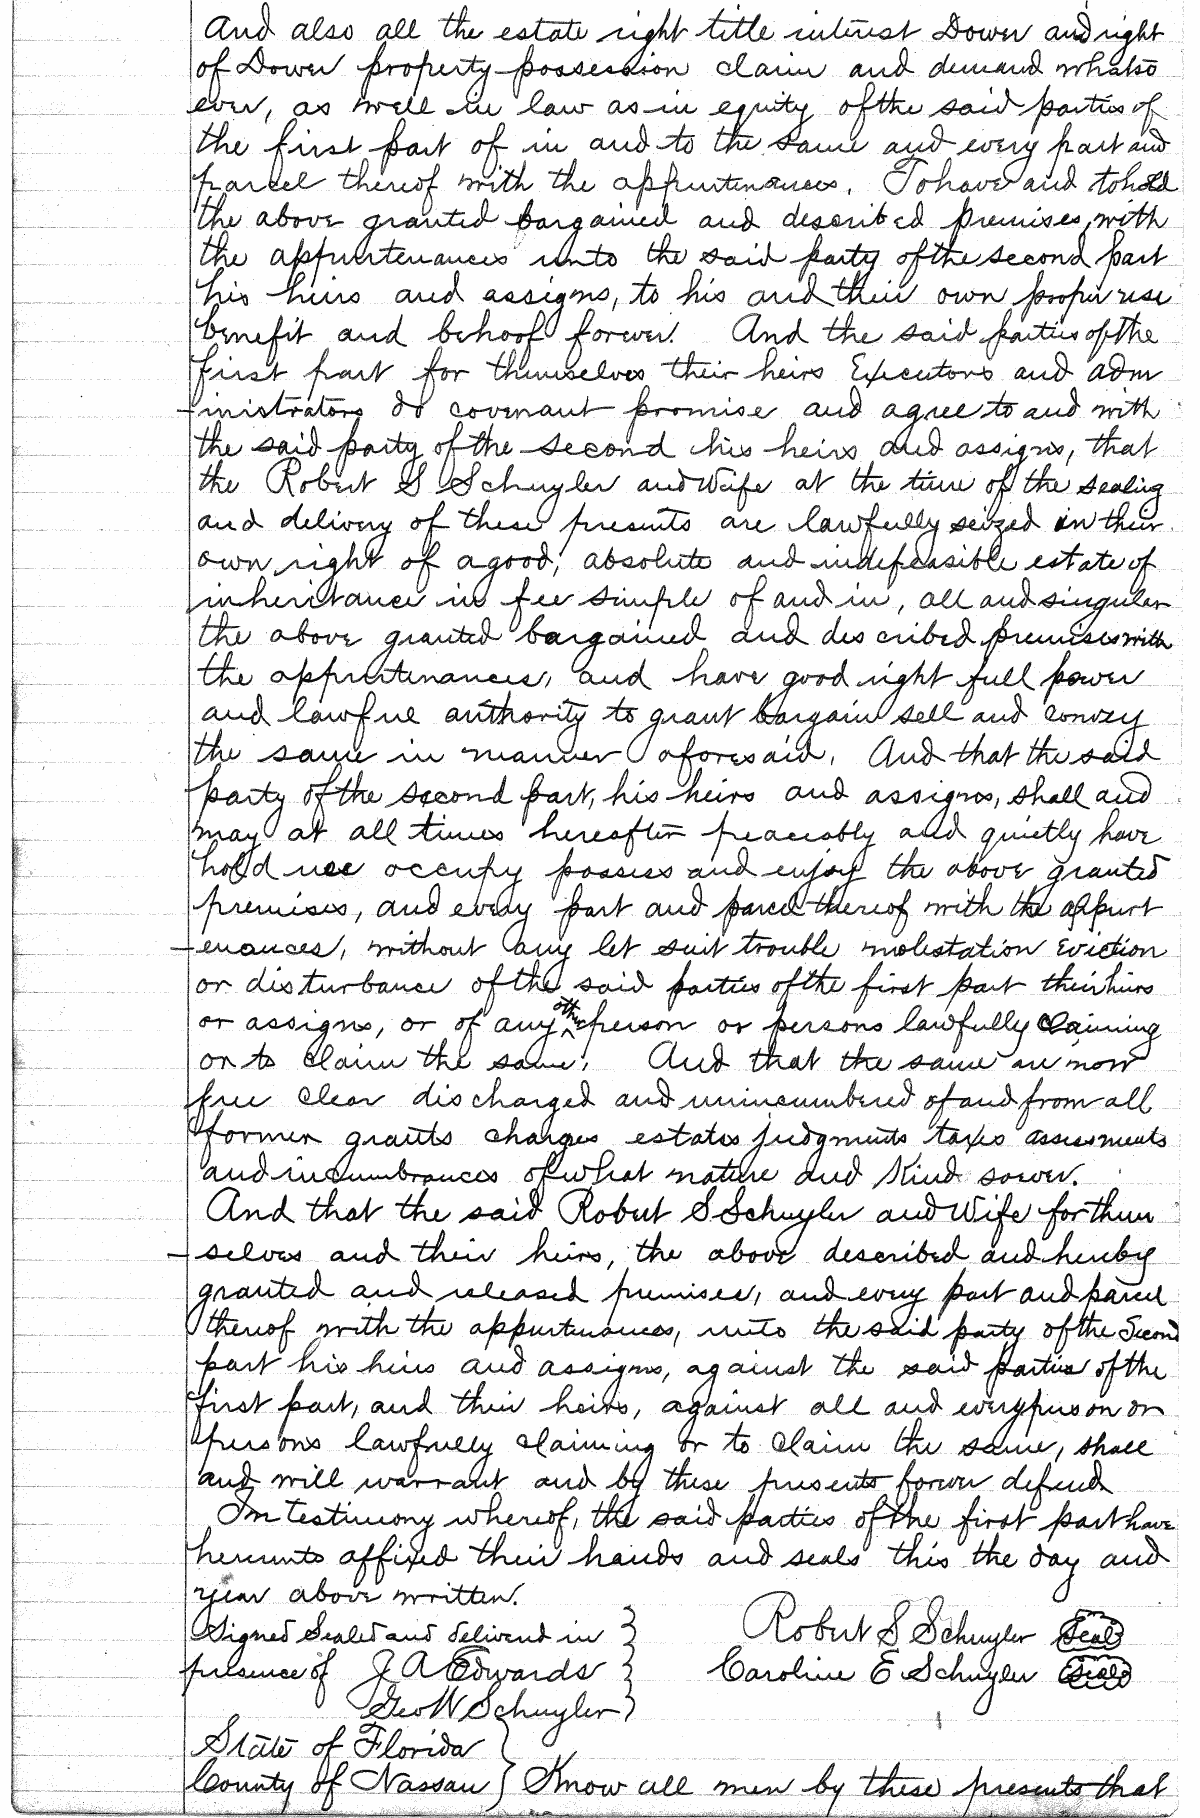 And also all the estate right title interest Dower and right
of Dower property possession claim and demand whatso
ever, as well in law as in equity of the said parties of
the first part of in and to the same and every part and
parcel thereof with the appurtenances. To have and to hold
the above granted bargained and described premises, with
the appurtenances unto the said party of the second part
his heirs and assigns, to his and their own proper use
benefit and behoof forever. And the said parties of the
first part for themselves their heirs Executors and adm
-inistrators do covenant promise and agree to and with
the said party of the second his heirs and assigns, that
the Robert S Schuyler and Wife at the time of the sealing
and delivery of these presents are lawfully seized in their
own right of a good, absolute and indefeasible estate of
inheritance in fee simple of and in, all and singular
the above granted bargained and described premises with
the appurtenances, and have good right full power
and lawful authority to grant bargain sell and convey
the same in manner aforesaid. And that the said
party of the second part, his heirs and assigns, shall and
may at all times hereafter peaceably and quietly have
hold use occupy possess and enjoy the above granted
premises, and every part and parcel thereof with the appurt
-enances, without any let suit trouble molestation Eviction
or disturbance of the said parties of the first part their heirs
or assigns, or of any other person or persons lawfully claiming
or to claim the same. And that the same are now
free clear discharged and unincumbered of and from all
former grants charges estates judgments taxes assessments
and incumbrances of what nature and Kind soever.
And that the said Robert S Schuyler and Wife for them
-selves and their heirs, the above described and hereby
granted and released premises, and every part and parcel
thereof with the appurtenances, unto the said party of the Second
part his heirs and assigns, against the said parties of the
first part, and their heirs, against all and every person or
persons lawfully claiming or to claim the same, shall
and will warrant and by these presents forever defend
In testimony whereof, the said parties of the first part have
hereunto affixed their hands and seals this the day and
year above written.
Signed Sealed and delivered in } Robert S Schuyler Seal
presence of J A Edwards } Caroline E Schuyler Seal
Geo W Schuyler }
State of Florida }
County of Nassau } Know all men by these presents that